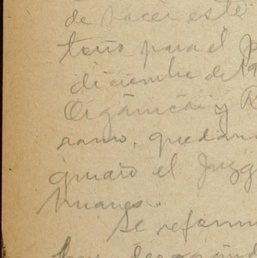 de hacer este
toño para el p
diciembre de 19
Orgánica y R
ramo, quedan
quiaró el Juzg
Huanes.
Se reform